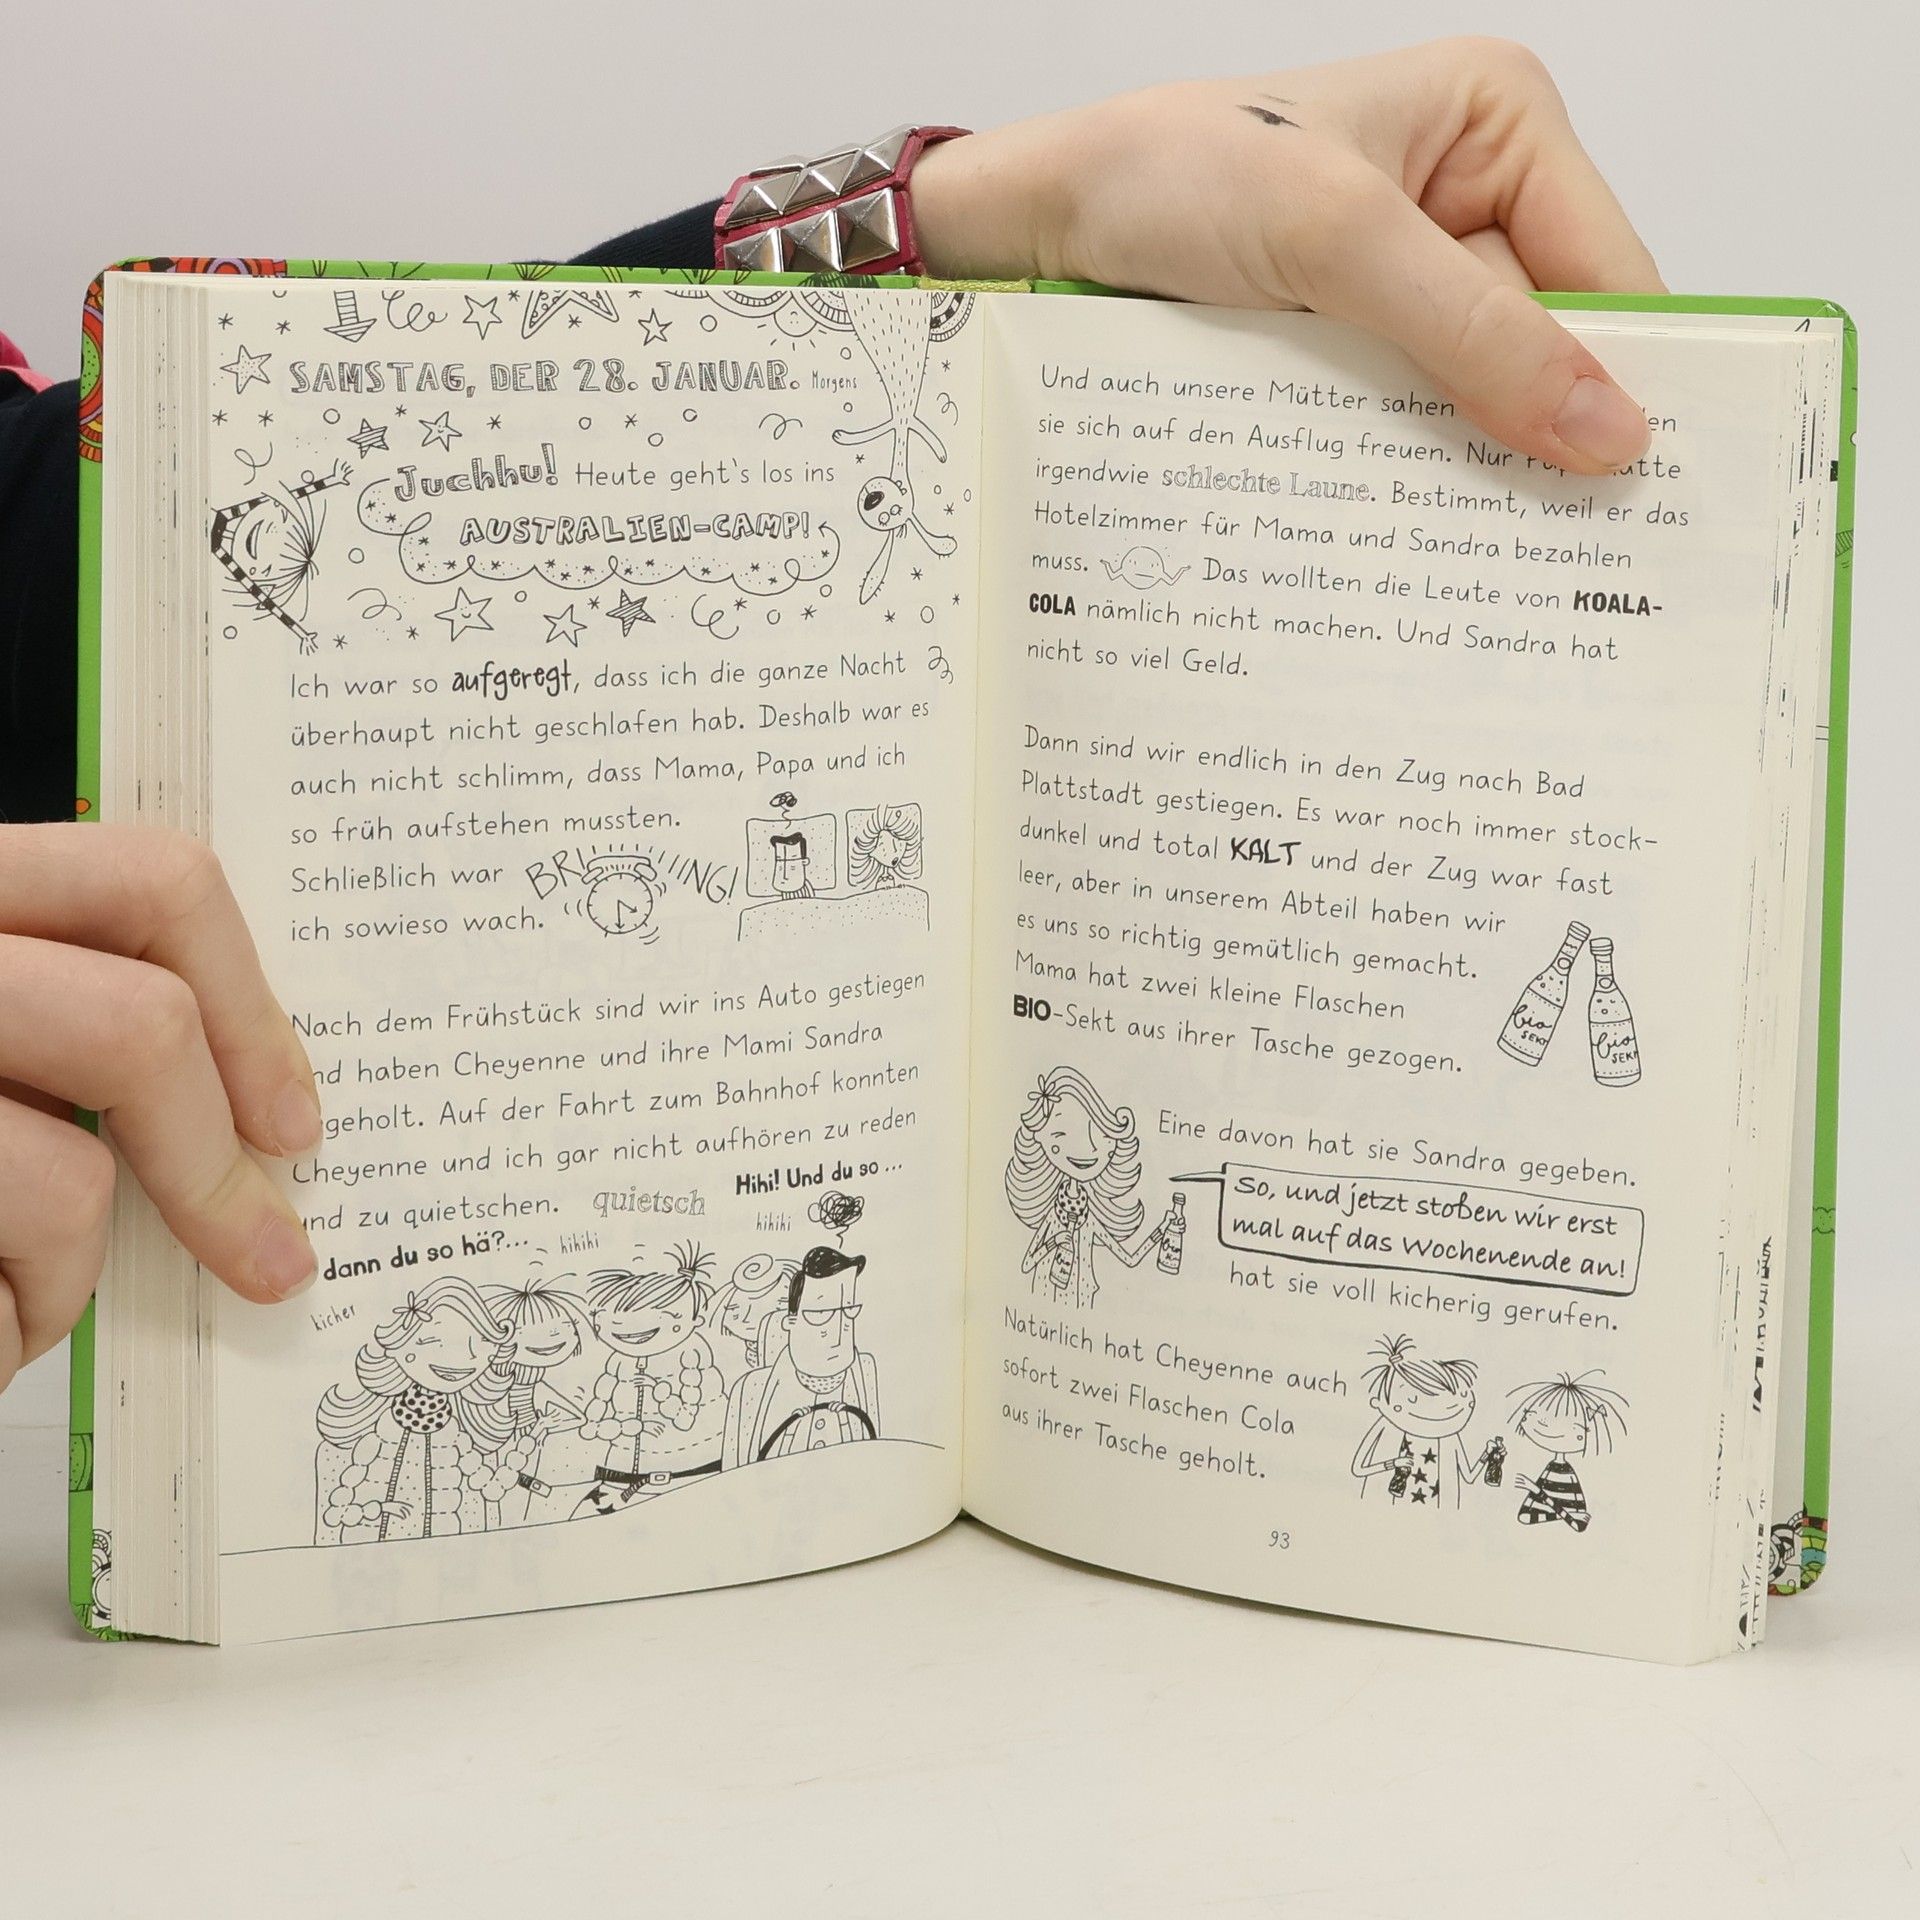 SAMSTAG, DER 28. JANUAR. Morgens
Juchhu! Heute geht's los ins
AUSTRALIEN-CAMP!
Ich war so aufgeregt, dass ich die ganze Nacht
überhaupt nicht geschlafen hab. Deshalb war es
auch nicht schlimm, dass Mama, Papa und ich
so früh aufstehen mussten.
Schließlich war
BRIIIIING!
ich sowieso wach.
Nach dem Frühstück sind wir ins Auto gestiegen
haben Cheyenne und ihre Mami Sandra
Auf der Fahrt zum Bahnhof konnten
Cheyenne und ich gar nicht aufhören zu reden
und zu quietschen. quietsch
Hihi! Und du so ...
hihihi
dann du so hä?...
hihihi
kicher
Und auch unsere Mütter sahen
sie sich auf den Ausflug freuen. Nur
irgendwie schlechte Laune. Bestimmt, weil er das
Hotelzimmer für Mama und Sandra bezahlen
muss. Das wollten die Leute von KOALA-
COLA nämlich nicht machen. Und Sandra hat
nicht so viel Geld.
Dann sind wir endlich in den Zug nach Bad
Plattstadt gestiegen. Es war noch immer stock-
dunkel und total KALT und der Zug war fast
leer, aber in unserem Abteil haben wir
es uns so richtig gemütlich gemacht.
Mama hat zwei kleine Flaschen
BIO-Sekt aus ihrer Tasche gezogen.
bio SEKT
bio SEKT
Eine davon hat sie Sandra gegeben.
So, und jetzt stoßen wir erst
mal auf das Wochenende an!
hat sie voll kicherig gerufen.
Natürlich hat Cheyenne auch
sofort zwei Flaschen Cola
aus ihrer Tasche geholt.
93